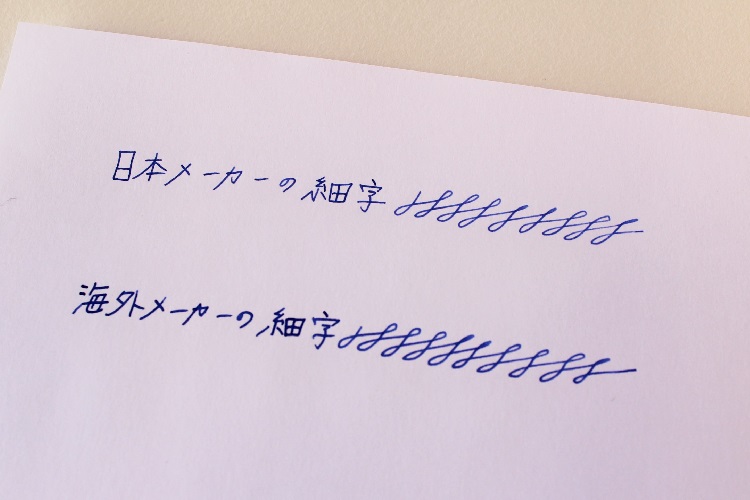 日本メーカーの細字
海外メーカーの細字